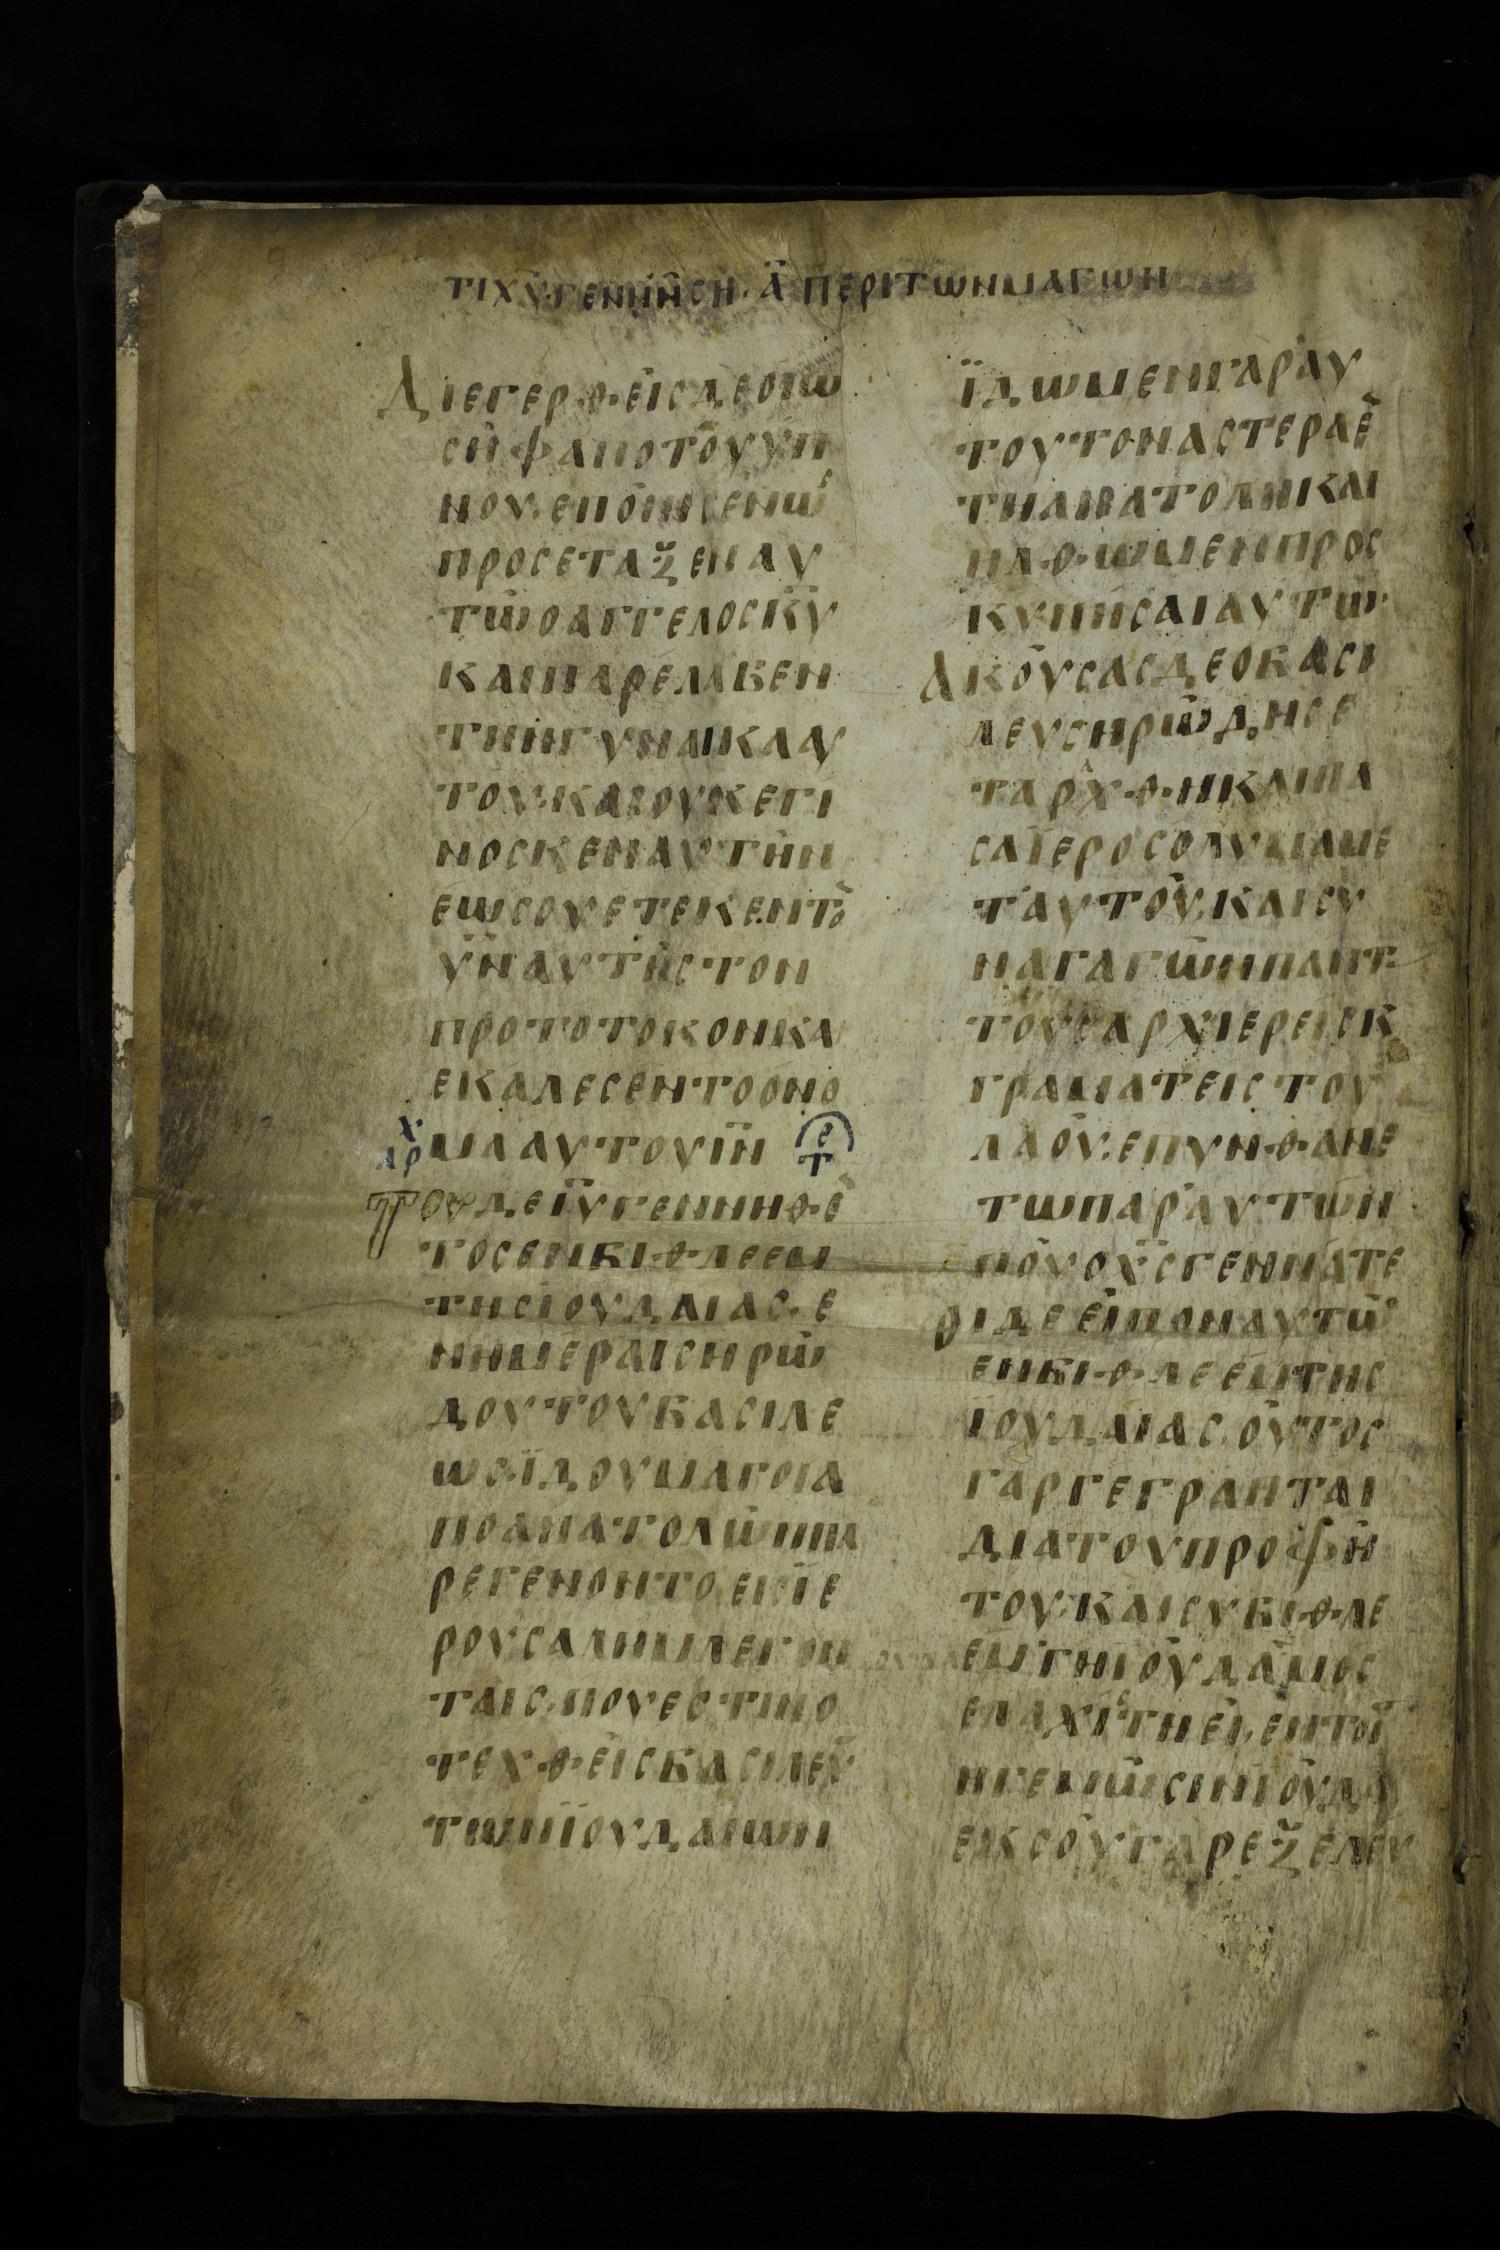 ΤΙ ΧΥ ΓΕΝΝΗΣΗ· Α ΠΕΡΙ ΤΩΝ ΜΑΓΩΝ
ΔΙΕΓΕΡΘΕΙΣ ΔΕ Ο ΙΩ
ΣΗΦ ΑΠΟ ΤΟΥ ΥΠ
ΝΟΥ· ΕΠΟΙΗΣΕΝ Ω
ΠΡΟΣΕΤΑΞΕΝ ΑΥ
ΤΩ Ο ΑΓΓΕΛΟΣ ΚΥ
ΚΑΙ ΠΑΡΕΛΑΒΕΝ
ΤΗΝ ΓΥΝΑΙΚΑ ΑΥ
ΤΟΥ· ΚΑΙ ΟΥΚ ΕΓΙ
ΝΟΣΚΕΝ ΑΥΤΗΝ
ΕΩΣ ΟΥ ΕΤΕΚΕΝ ΤΟ
ΥΝ ΑΥΤΗΣ ΤΟΝ
ΠΡΟΤΟΤΟΚΟΝ ΚΑ
ΕΚΑΛΕΣΕΝ ΤΟ ΟΝΟ
ΑΡΧ ΜΑ ΑΥΤΟΥ ΙΝ ΤΕ
ΤΟΥ ΔΕ ΙΥ ΓΕΝΝΗΘΕ
ΤΟΣ ΕΝ ΒΙΘΛΕΕΜ
ΤΗΣ ΙΟΥΔΑΙΑΣ· Ε
Ν ΗΜΕΡΑΙΣ ΗΡΩ
ΔΟΥ ΤΟΥ ΒΑΣΙΛΕ
ΩΣ· ΪΔΟΥ ΜΑΓΟΙ Α
ΠΟ ΑΝΑΤΟΛΩΝ ΠΑ
ΡΕΓΕΝΟΝΤΟ ΕΙΣ ΪΕ
ΡΟΥΣΑΛΗΜ ΛΕΓΟΝ
ΤΑΙΣ· ΠΟΥ ΕΣΤΙΝ Ο
ΤΕΧΘΕΙΣ ΒΑΣΙΛΕΥ
ΤΩΝ ΪΟΥΔΑΙΩΝ
ΪΔΩΜΕΝ ΓΑΡ ΑΥ
ΤΟΥ ΤΟΝ ΑΣΤΕΡΑ Ε
ΤΗ ΑΝΑΤΟΛΗ ΚΑΙ
ΗΛΘΩΜΕΝ ΠΡΟΣ
ΚΥΝΗΣΑΙ ΑΥΤΩ·
ΑΚΟΥΣΑΣ ΔΕ Ο ΒΑΣΙ
ΛΕΥΣ ΗΡΩΔΗΣ Ε
ΤΑΡΧΘΗ ΚΑΙ ΠΑ
ΣΑ ΪΕΡΟΣΟΛΥΜΑ ΜΕ
Τ ΑΥΤΟΥ· ΚΑΙ ΣΥ
ΝΑΓΑΓΩΝ ΠΑΝΤ
ΤΟΥΣ ΑΡΧΙΕΡΕΙΣ Κ
ΓΡΑΜΑΤΕΙΣ ΤΟΥ
ΛΑΟΥ· ΕΠΥΝΘΑΝΕ
ΤΩ ΠΑΡ ΑΥΤΩΝ
ΠΟΥ Ο ΧΣ ΓΕΝΝΑΤΕ
ΟΙ ΔΕ ΕΙΠΟΝ ΑΥΤΩ
ΕΝ ΒΙΘΛΕΕΜ ΤΗΣ
ΪΟΥΔΑΙΑΣ· ΟΥΤΟΣ
ΓΑΡ ΓΕΓΡΑΠΤΑΙ
ΔΙΑ ΤΟΥ ΠΡΟΦΗ
ΤΟΥ· ΚΑΙ ΣΥ ΒΙΘΛΕ
ΕΜ ΓΗ ΙΟΥΔΑ ΜΟΣ
ΕΛΑΧΙΣΤΗ ΕΙ· ΕΝ ΤΟΙ
ΗΓΕΜΩΣΙΝ ΙΟΥΔΑ
ΕΚ ΣΟΥ ΓΑΡ ΕΞΕΛΕΥ